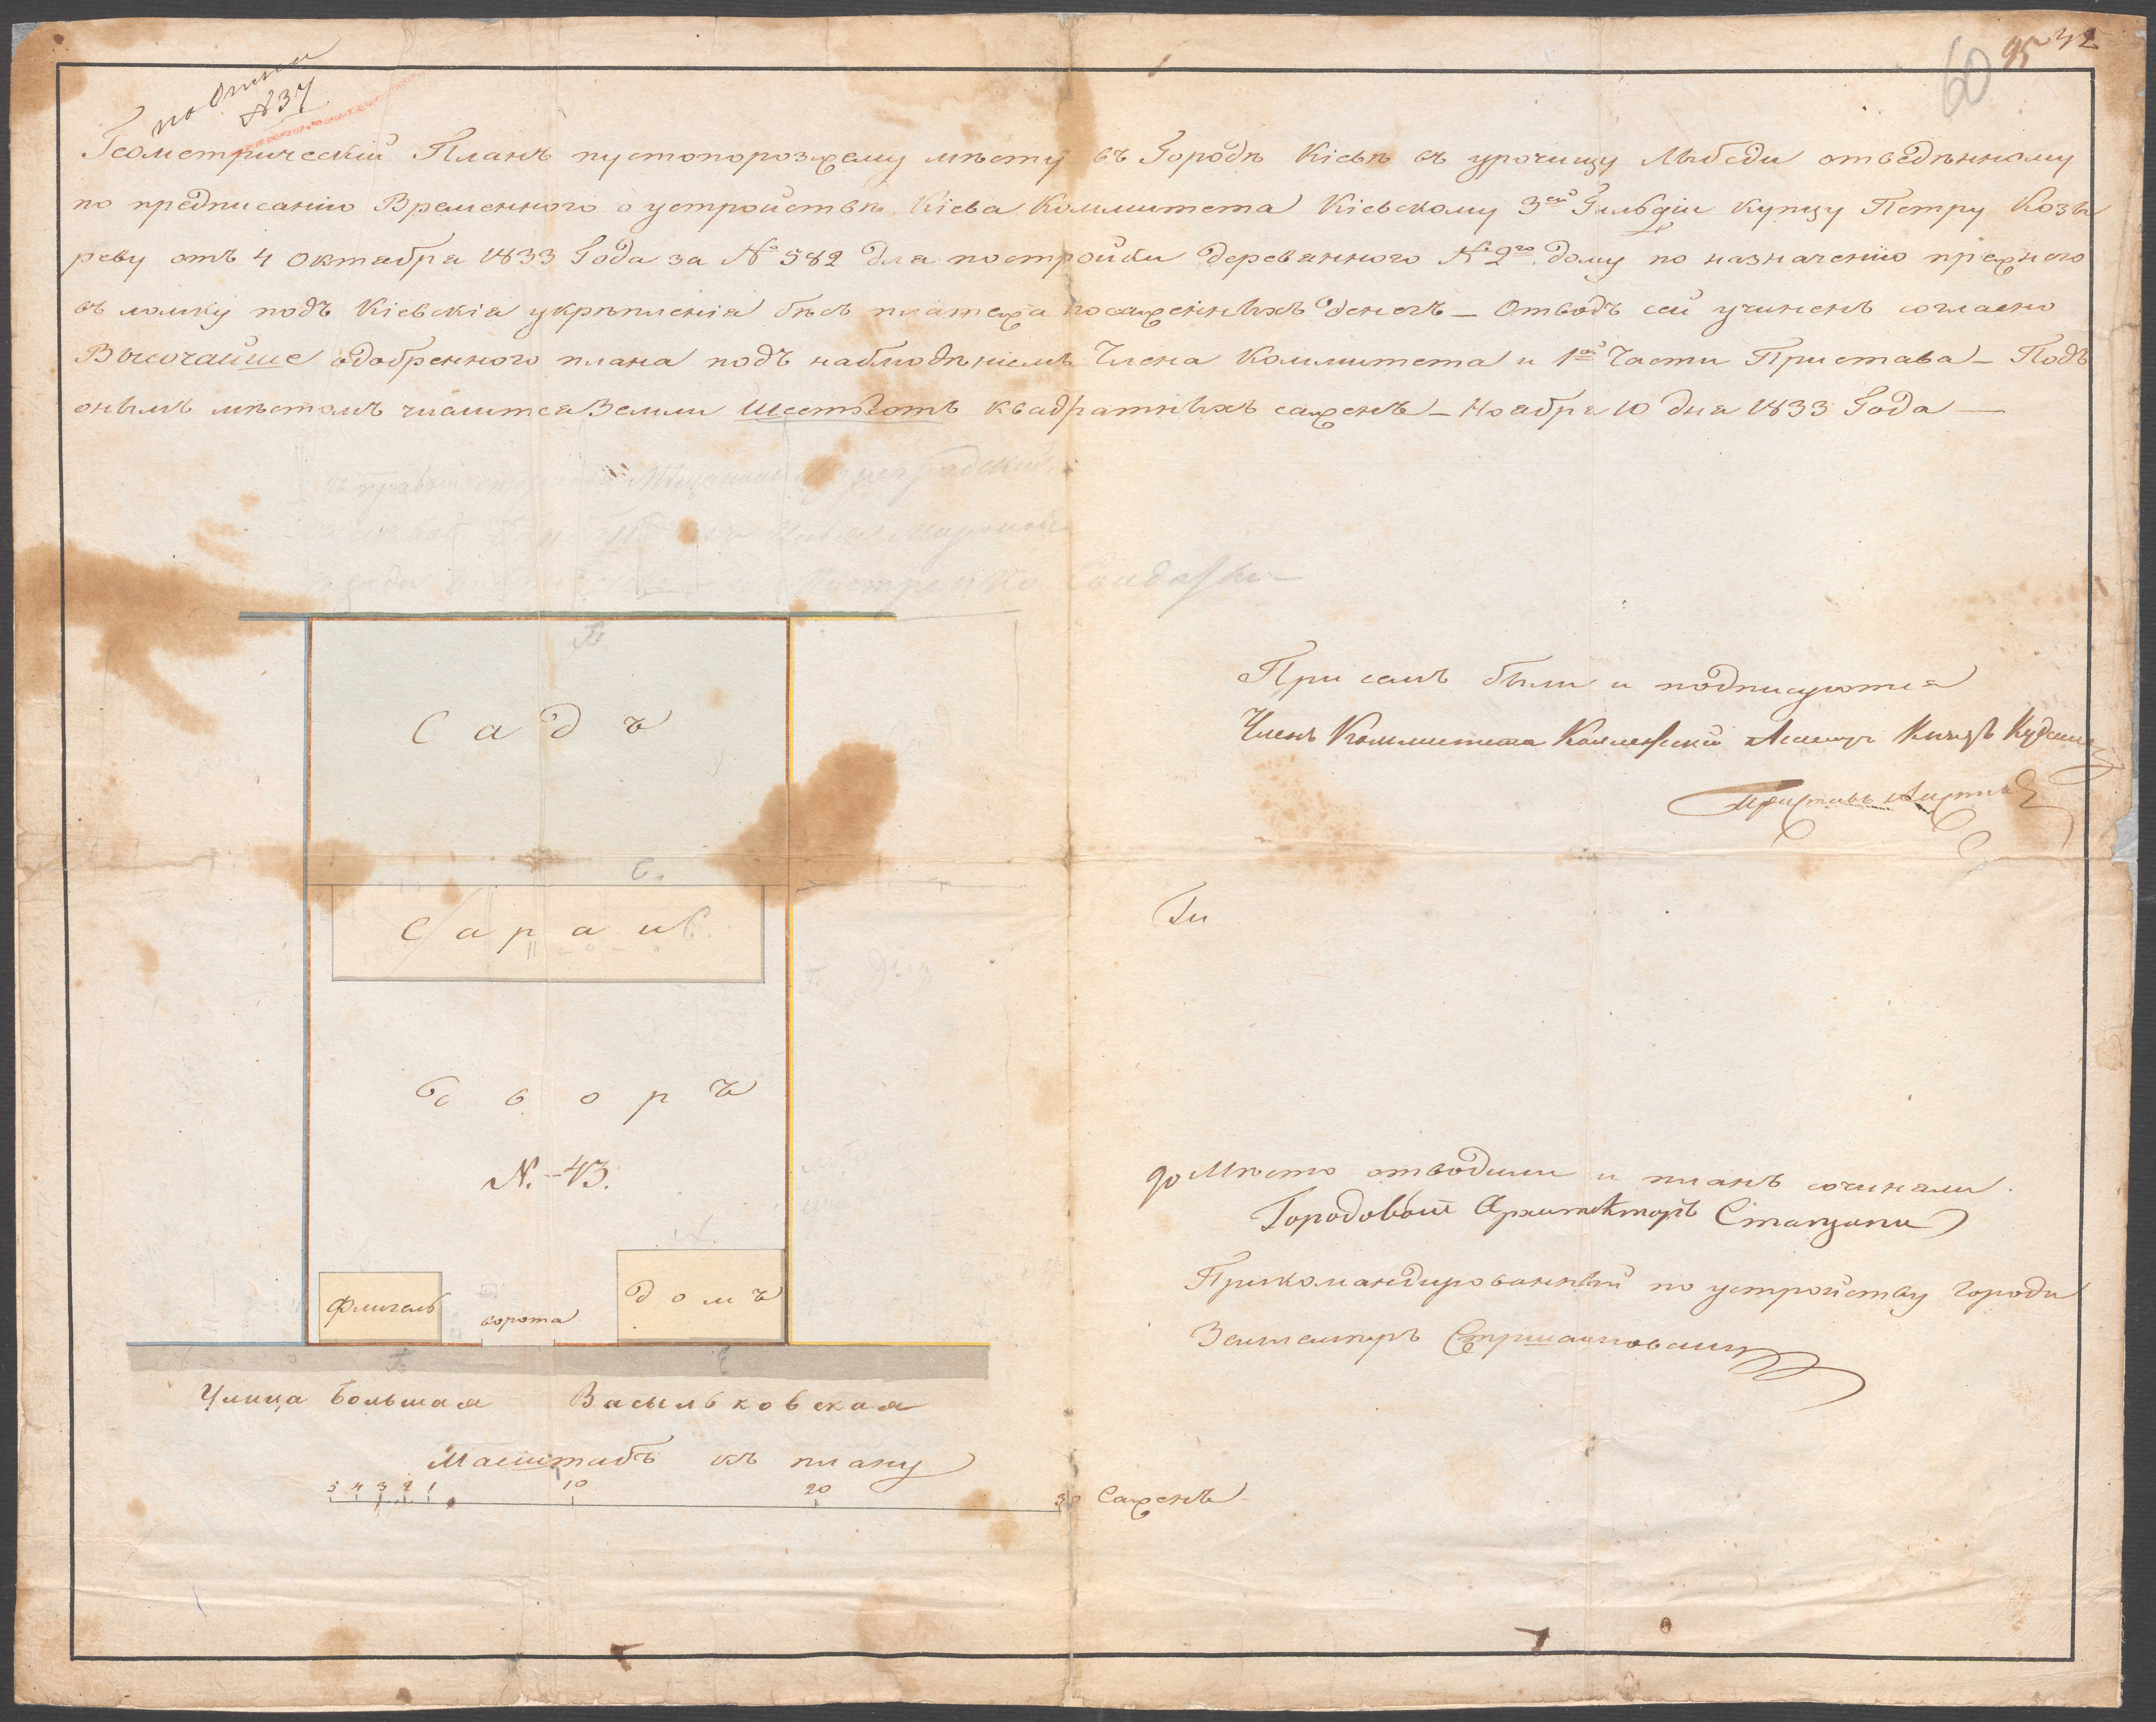 по описи
№ 37
60 95 42
Геометрическій Планъ пустопорозжему мѣсту въ Городѣ Кіевѣ въ урочищу Лыбеди отведѣнному
по предписанію Временного о устройствѣ Кіева Коммитета Кіевскому 3ей Гильдіи купцу Петру Козы
реву отъ 4 Октября 1833 Года за № 582 для постройки деревянного № 2го дому по назначенію прежнего
въ ломку подъ Кіевскія укрѣпленія бѣсъ платежа посаженныхъ денегъ — Отводъ сей учиненъ согласно
Высочайше одобренного плана подъ наблюдѣніемъ Члена Коммитета и 1ой Части Пристава — Подъ
онымъ мѣстомъ числится Земли Шестьсотъ квадратныхъ саженъ — Ноября 10 дня 1833 Года —
Садъ
Сараи
Дворъ
N. 43.
флигель
ворота
домъ
Улица Большая Васыльковская
Масштабъ къ плану
5 4 3 2 1 10 20 30 Саженъ
При семъ были и подписуются
Членъ Коммитета Коллежскій Асесоръ Князь
Приставъ
Мѣсто отводили и планъ сочиняли
Городовой Архитекторъ Станзани
Прикомандированный по устройству города
Землемеръ